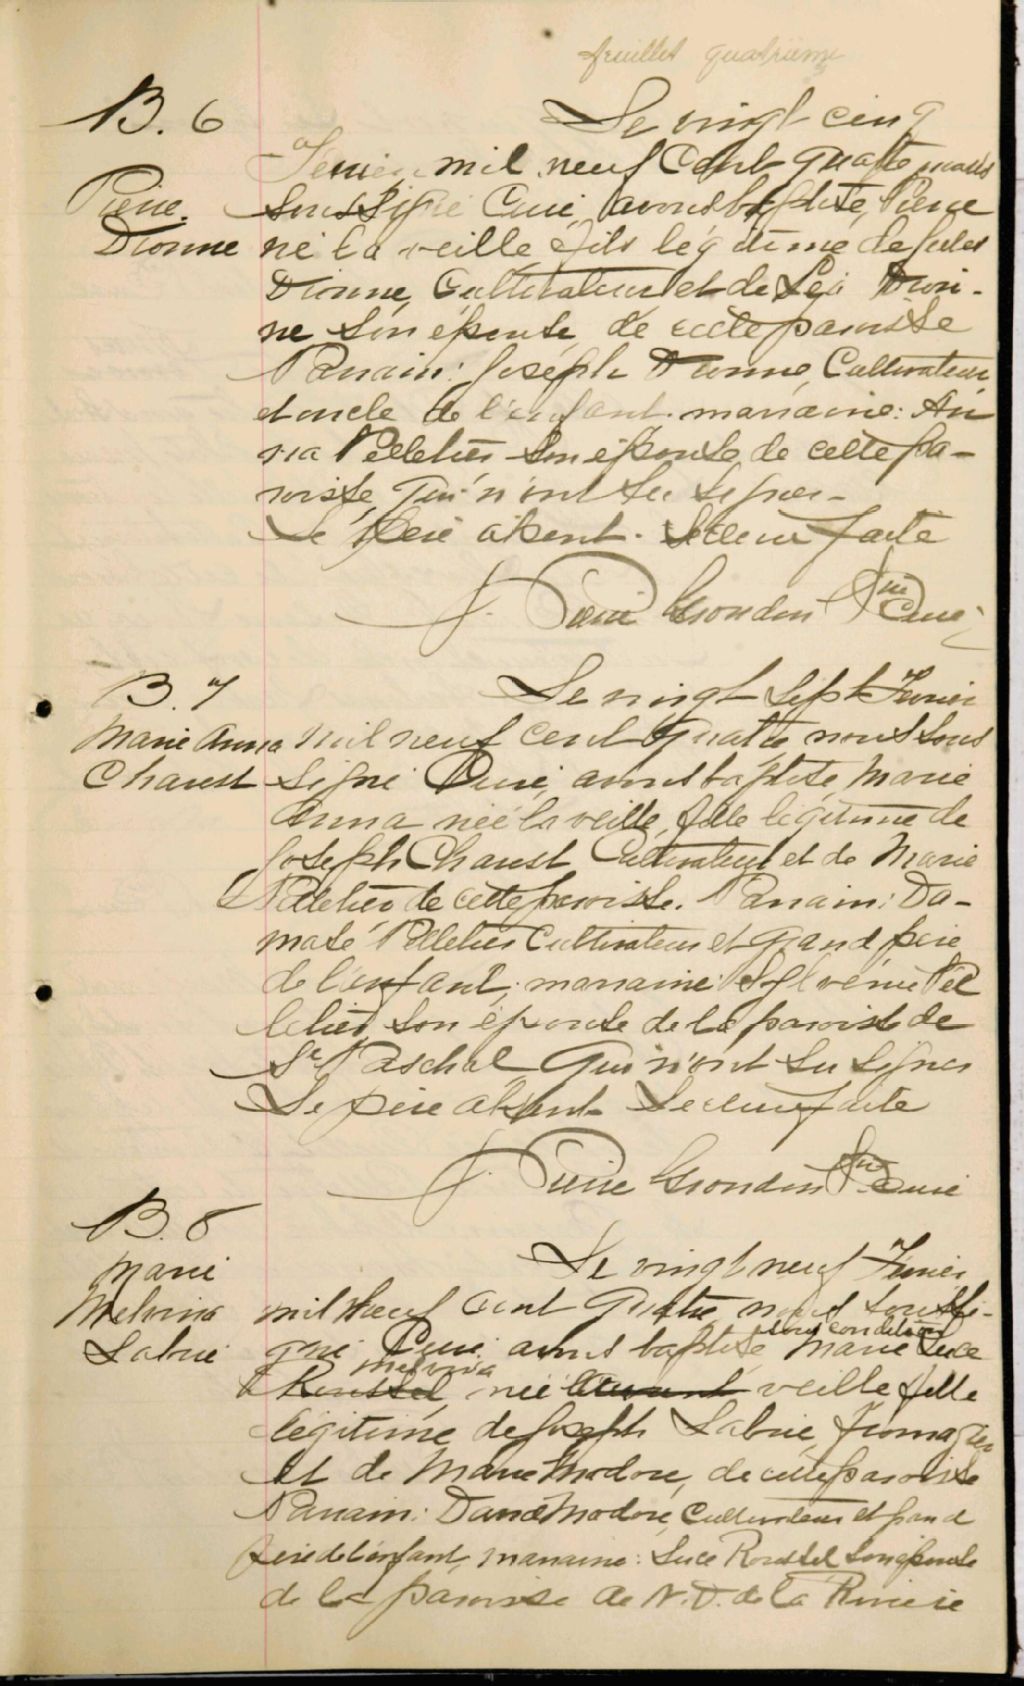 feuillet quatrième
B. 6
Le vingt cinq
Février mil neuf Cent quatre nous
Pierre
Soussigné Curé, avons baptisé, Pierre
Dionne
né la veille, fils légitime de Jules
Dionne, Cultivateur et de Léa Dion-
ne son épouse, de cette paroisse
Parrain: Joseph Dionne, Cultivateur
et oncle de l'enfant. marraine: An
na Pelletier son épouse de cette pa-
roisse, qui n'ont su signer-
Le père absent. Lecture faite
J. Pierre Grondin Ptre Curé
B. 7
Le vingt sept Février
Marie Anna
mil neuf cent quatre, nous sous
Charest
signé Curé, avons baptisé, Marie
Anna née la veille, fille légitime de
Joseph Charest Cultivateur et de Marie
Pelletier de cette paroisse. Parrain: Da-
mase Pelletier Cultivateur et grand père
de l'enfant; marraine: Pel
letier, son épouse de la paroisse de
St Paschal, Qui n'ont su signer
Le père absent Lecture faite
J. Pierre Grondin Ptre Curé
B. 8
Le vingt neuf Février
Marie
Melvina
mil neuf cent quatre, nous soussi-
sous condition
Labrie
gné Curé, avons baptisé Marie Luce
melvina
Roussel, née veille fille
légitime de Joseph Labrie, fromager
et de Marie Modore, de cette paroisse
Parrain: David Modore, Cultivateur et grand
père de l'enfant, marraine: Luce Roussel son épouse
de la paroisse de N. D. de la Rivière